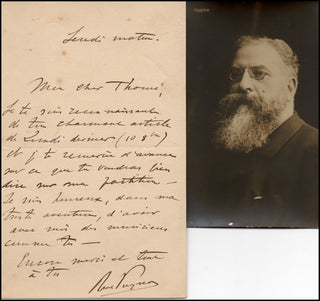 Lundi matin.
Mon cher Thomé,
Je te suis reconnaissant
de ton charmant article
de Lundi dernier (10 8bre)
et je te remercie d'avance
sur ce que tu voudras bien
dire sur ma partition —
Je suis heureux, dans ma
triste aventure, d'avoir
avec moi des musiciens
comme toi —
Encore merci et tout
à toi
Raoul Pugno